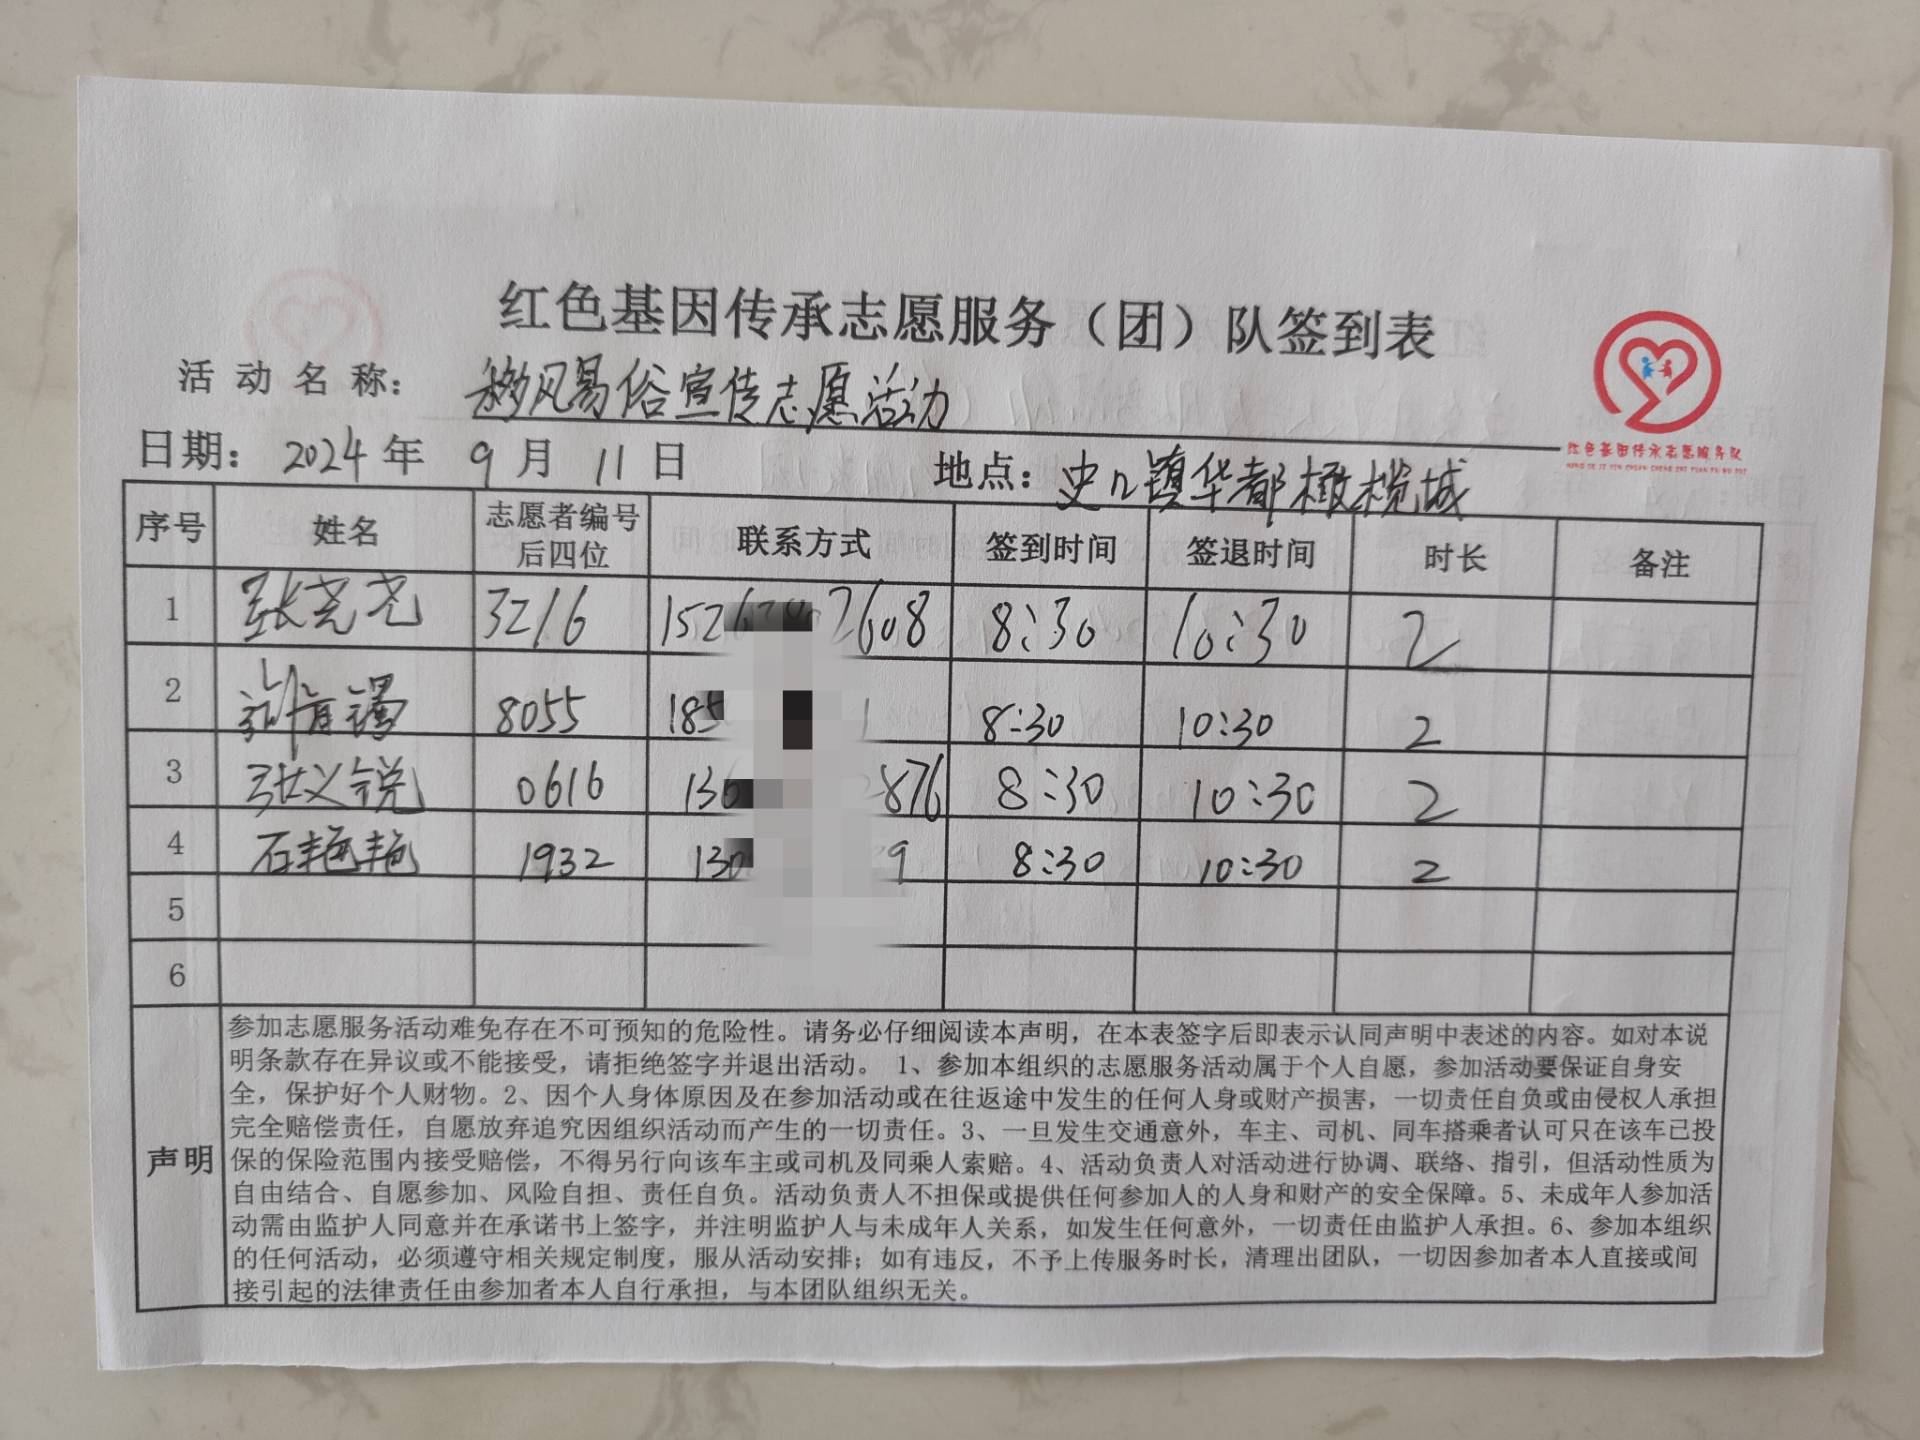 红色基因传承志愿服务（团）队签到表
活动名称： 移风易俗宣传志愿活动
红色基因传承志愿服务队
日期： 2024 年 9 月 11 日 地点：史口镇华都橄榄城
序号 姓名 志愿者编号后四位 联系方式 签到时间 签退时间 时长 备注
1 张尧尧 3216 152 2608 8:30 10:30 2
2 8055 185 1 8:30 10:30 2
3 张义锐 0616 136 2876 8:30 10:30 2
4 石艳艳 1932 130 9 8:30 10:30 2
5
6
声明
参加志愿服务活动难免存在不可预知的危险性。请务必仔细阅读本声明，在本表签字后即表示认同声明中表述的内容。如对本说
明条款存在异议或不能接受，请拒绝签字并退出活动。 1、参加本组织的志愿服务活动属于个人自愿，参加活动要保证自身安
全，保护好个人财物。2、因个人身体原因及在参加活动或在往返途中发生的任何人身或财产损害，一切责任自负或由侵权人承担
完全赔偿责任，自愿放弃追究因组织活动而产生的一切责任。3、一旦发生交通意外，车主、司机、同车搭乘者认可只在该车已投
保的保险范围内接受赔偿，不得另行向该车主或司机及同乘人索赔。4、活动负责人对活动进行协调、联络、指引，但活动性质为
自由结合、自愿参加、风险自担、责任自负。活动负责人不担保或提供任何参加人的人身和财产的安全保障。5、未成年人参加活
动需由监护人同意并在承诺书上签字，并注明监护人与未成年人关系，如发生任何意外，一切责任由监护人承担。6、参加本组织
的任何活动，必须遵守相关规定制度，服从活动安排；如有违反，不予上传服务时长，清理出团队，一切因参加者本人直接或间
接引起的法律责任由参加者本人自行承担，与本团队组织无关。